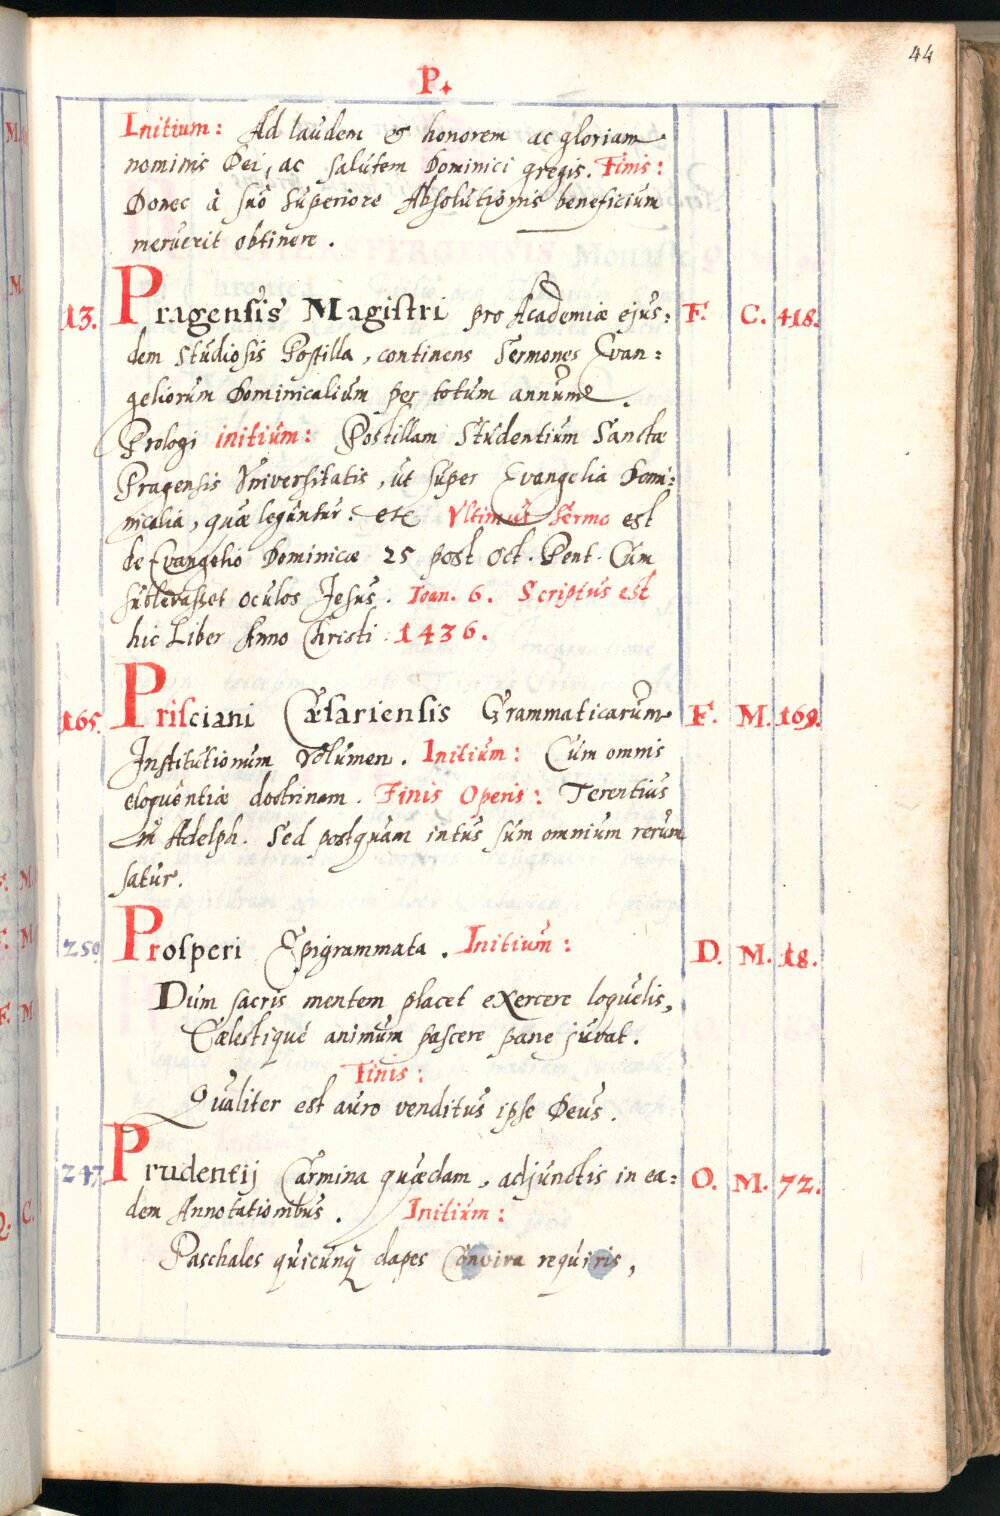 44
P.
Initium: Ad laudem & honorem ac gloriam
nominis Dei, ac salutem Dominici gregis. Finis:
Donec à suo Superiore Absolutionis beneficium
meruerit obtinere.
13. Pragensis Magistri pro Academiæ ejus: F. C. 418.
dem Studiosis Postilla, continens Sermones Evan:
geliorum Dominicalium per totum annum.
Prologi initium: Postillam Studentium Sanctæ
Pragensis Vniversitatis, ut super Evangelia Domi:
nicalia, quæ leguntur. etc Vltimus Sermo est
de Evangelio Dominicæ 25 post Oct. Pent. Cum
sublevasset oculos Jesus. Ioan. 6. Scriptus est
hic Liber Anno Christi 1436.
165. Prisciani Cæsariensis Grammaticarum F. M. 169.
Institutionum Volumen. Initium: Cum omnis
eloquentiæ doctrinam. Finis Operis: Terentius
in Adelph. Sed postquam intus sum omnium rerum
satur.
250. Prosperi Epigrammata. Initium: D. M. 18.
Dum sacris mentem placet exercere loquelis,
Cælestique animum pascere pane juvat.
Finis:
Qualiter est auro venditus ipse Deus.
247. Prudentij Carmina quædam, adjunctis in ea: O. M. 72.
dem Annotationibus. Initium:
Paschales quicunq dapes Conviva requiris,